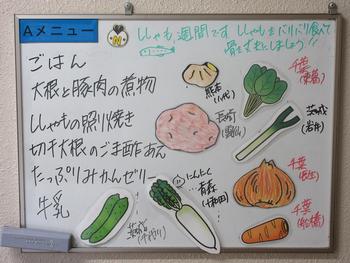 Aメニュー
ししゃも週間です ししゃもをバリバリ食べて
骨を丈夫にしましょう!!
ごはん
大根と豚肉の煮物
ししゃもの照り焼き
切干大根のごま酢あえ
たっぷりみかんゼリー
牛乳
熊本
(八代)
長崎
千葉
茨城
(岩井)
千葉
千葉
(船橋)
にんにく
青森
(十和田)
茨城